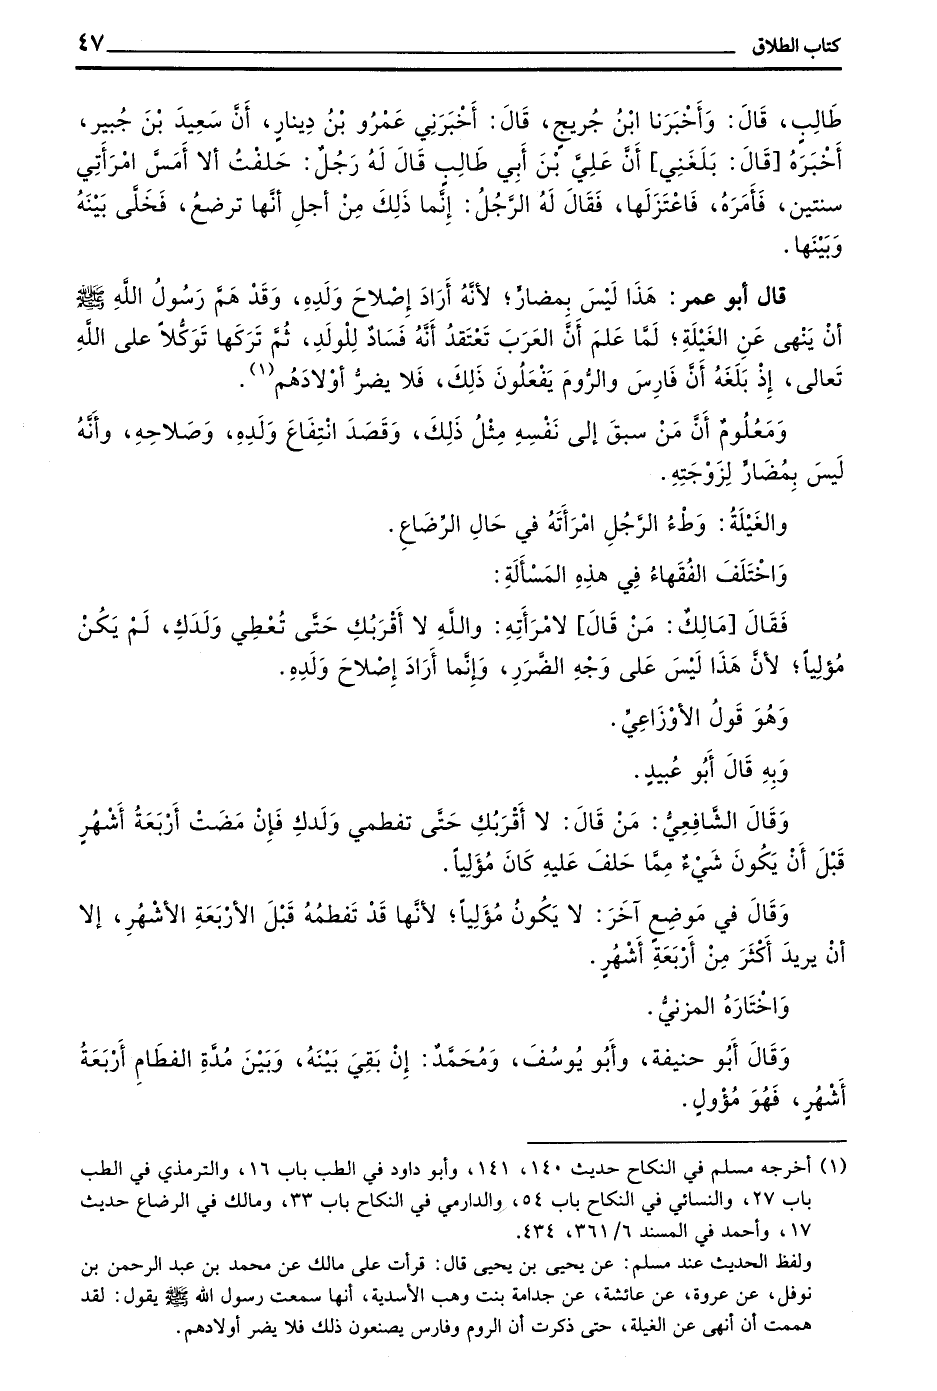 كتاب الطلاق ٤٧
طَالِبٍ، قَالَ: وَأَخْبَرَنا ابْنُ جُريجٍ، قَالَ: أَخْبَرَنِي عَمْرُو بْنُ دِينارٍ، أَنَّ سَعِيدَ بْنَ جُبير،
أَخْبَرَهُ [قَالَ: بَلَغَنِي] أَنَّ عَلِيَّ بْنَ أَبِي طَالِبٍ قَالَ لَهُ رَجُلٌ: حَلفْتُ ألا أَمَسَّ امْرَأَتِي
سنتين، فَأَمَرَهُ، فَاعْتَزَلَها، فَقَالَ لَهُ الرَّجُلُ: إِنَّما ذَلِكَ مِنْ أجلِ أنَّها ترضعُ، فَخَلَّى بَيْنَهُ
وَبَيْنَها.
قال أبو عمر: هَذَا لَيْسَ بِمضارٍّ؛ لأنَّهُ أَرَادَ إِصْلاحَ وَلَدِهِ، وَقَدْ هَمَّ رَسُولُ اللَّهِ ﷺ
أنْ يَنْهى عَنِ الغَيْلَةِ؛ لَمَّا عَلمَ أَنَّ العَرَبَ تَعْتَقدُ أَنَّهُ فَسَادٌ لِلْولَدِ، ثُمَّ تَرَكَها تَوَكُّلاً على اللَّهِ
تَعالى، إِذْ بَلَغَهُ أَنَّ فَارِسَ والرُّومَ يَفْعَلُونَ ذَلِكَ، فَلا يضرُّ أوْلادَهُم(١).
وَمَعُلُومٌ أَنَّ مَنْ سبقَ إلى نَفْسِهِ مِثْلُ ذَلِكَ، وَقَصَدَ انْتِفَاعَ وَلَدِهِ، وَصَلاحِهِ، وأنَّهُ
لَيسَ بِمُضَارٍّ لِزَوْجَتِهِ.
والغَيْلَةُ: وَطْءُ الرَّجُلِ امْرَأَتَهُ في حَالِ الرِّضَاعِ.
وَاخْتَلَفَ الفُقَهاءُ فِي هذِهِ المَسْأَلَةِ:
فَقَالَ [مَالِكٌ: مَنْ قَالَ] لامْرأَتِهِ: واللَّهِ لا أقْرَبُكِ حَتَّى تُعْطِي وَلَدَكِ، لَمْ يَكُنْ
مُؤلِياً؛ لأنَّ هَذَا لَيْسَ عَلى وَجْهِ الضَّرَرِ، وَإِنَّما أَرَادَ إِصْلاحَ وَلَدِهِ.
وَهُوَ قَولُ الأوْزَاعِيِّ.
وَبِهِ قَالَ أَبُو عُبيدٍ.
وَقَالَ الشَّافِعِيُّ: مَنْ قَالَ: لا أَقْرَبُكِ حَتَّى تفطمي وَلَدكِ فَإِنْ مَضَتْ أَرْبَعَةُ أَشْهُرٍ
قَبْلَ أَنْ يَكُونَ شَيْءٌ مِمَّا حَلفَ عَليهِ كَانَ مُؤَلِياً.
وَقَالَ في مَوضِعٍ آخَرَ: لا يَكُونُ مُؤَلِياً؛ لأنَّها قَدْ تَفطمُهُ قَبْلَ الأرْبَعَةِ الأشْهُرِ، إلا
أنْ يريدَ أَكْثَرَ مِنْ أَرْبَعَةِ أَشْهُرٍ.
وَاخْتَارَهُ المزنيُّ.
وَقَالَ أَبُو حنيفة، وأَبُو يُوسُفَ، وَمُحَمَّدٌ: إِنْ بَقِيَ بَيْنَهُ، وَبَيْنَ مُدَّةِ الفطَامِ أَرْبَعَةُ
أَشْهُرٍ، فَهُوَ مُؤْولٍ.
(١) أخرجه مسلم في النكاح حديث ١٤٠، ١٤١، وأبو داود في الطب باب ١٦، والترمذي في الطب
باب ٢٧، والنسائي في النكاح باب ٥٤، والدارمي في النكاح باب ٣٣، ومالك في الرضاع حديث
١٧، وأحمد في المسند ٦/ ٣٦١، ٤٣٤.
ولفظ الحديث عند مسلم: عن يحيى بن يحيى قال: قرأت على مالك عن محمد بن عبد الرحمن بن
نوفل، عن عروة، عن عائشة، عن جدامة بنت وهب الأسدية، أنها سمعت رسول الله ﷺ يقول: لقد
هممت أن أنهى عن الغيلة، حتى ذكرت أن الروم وفارس يصنعون ذلك فلا يضر أولادهم.